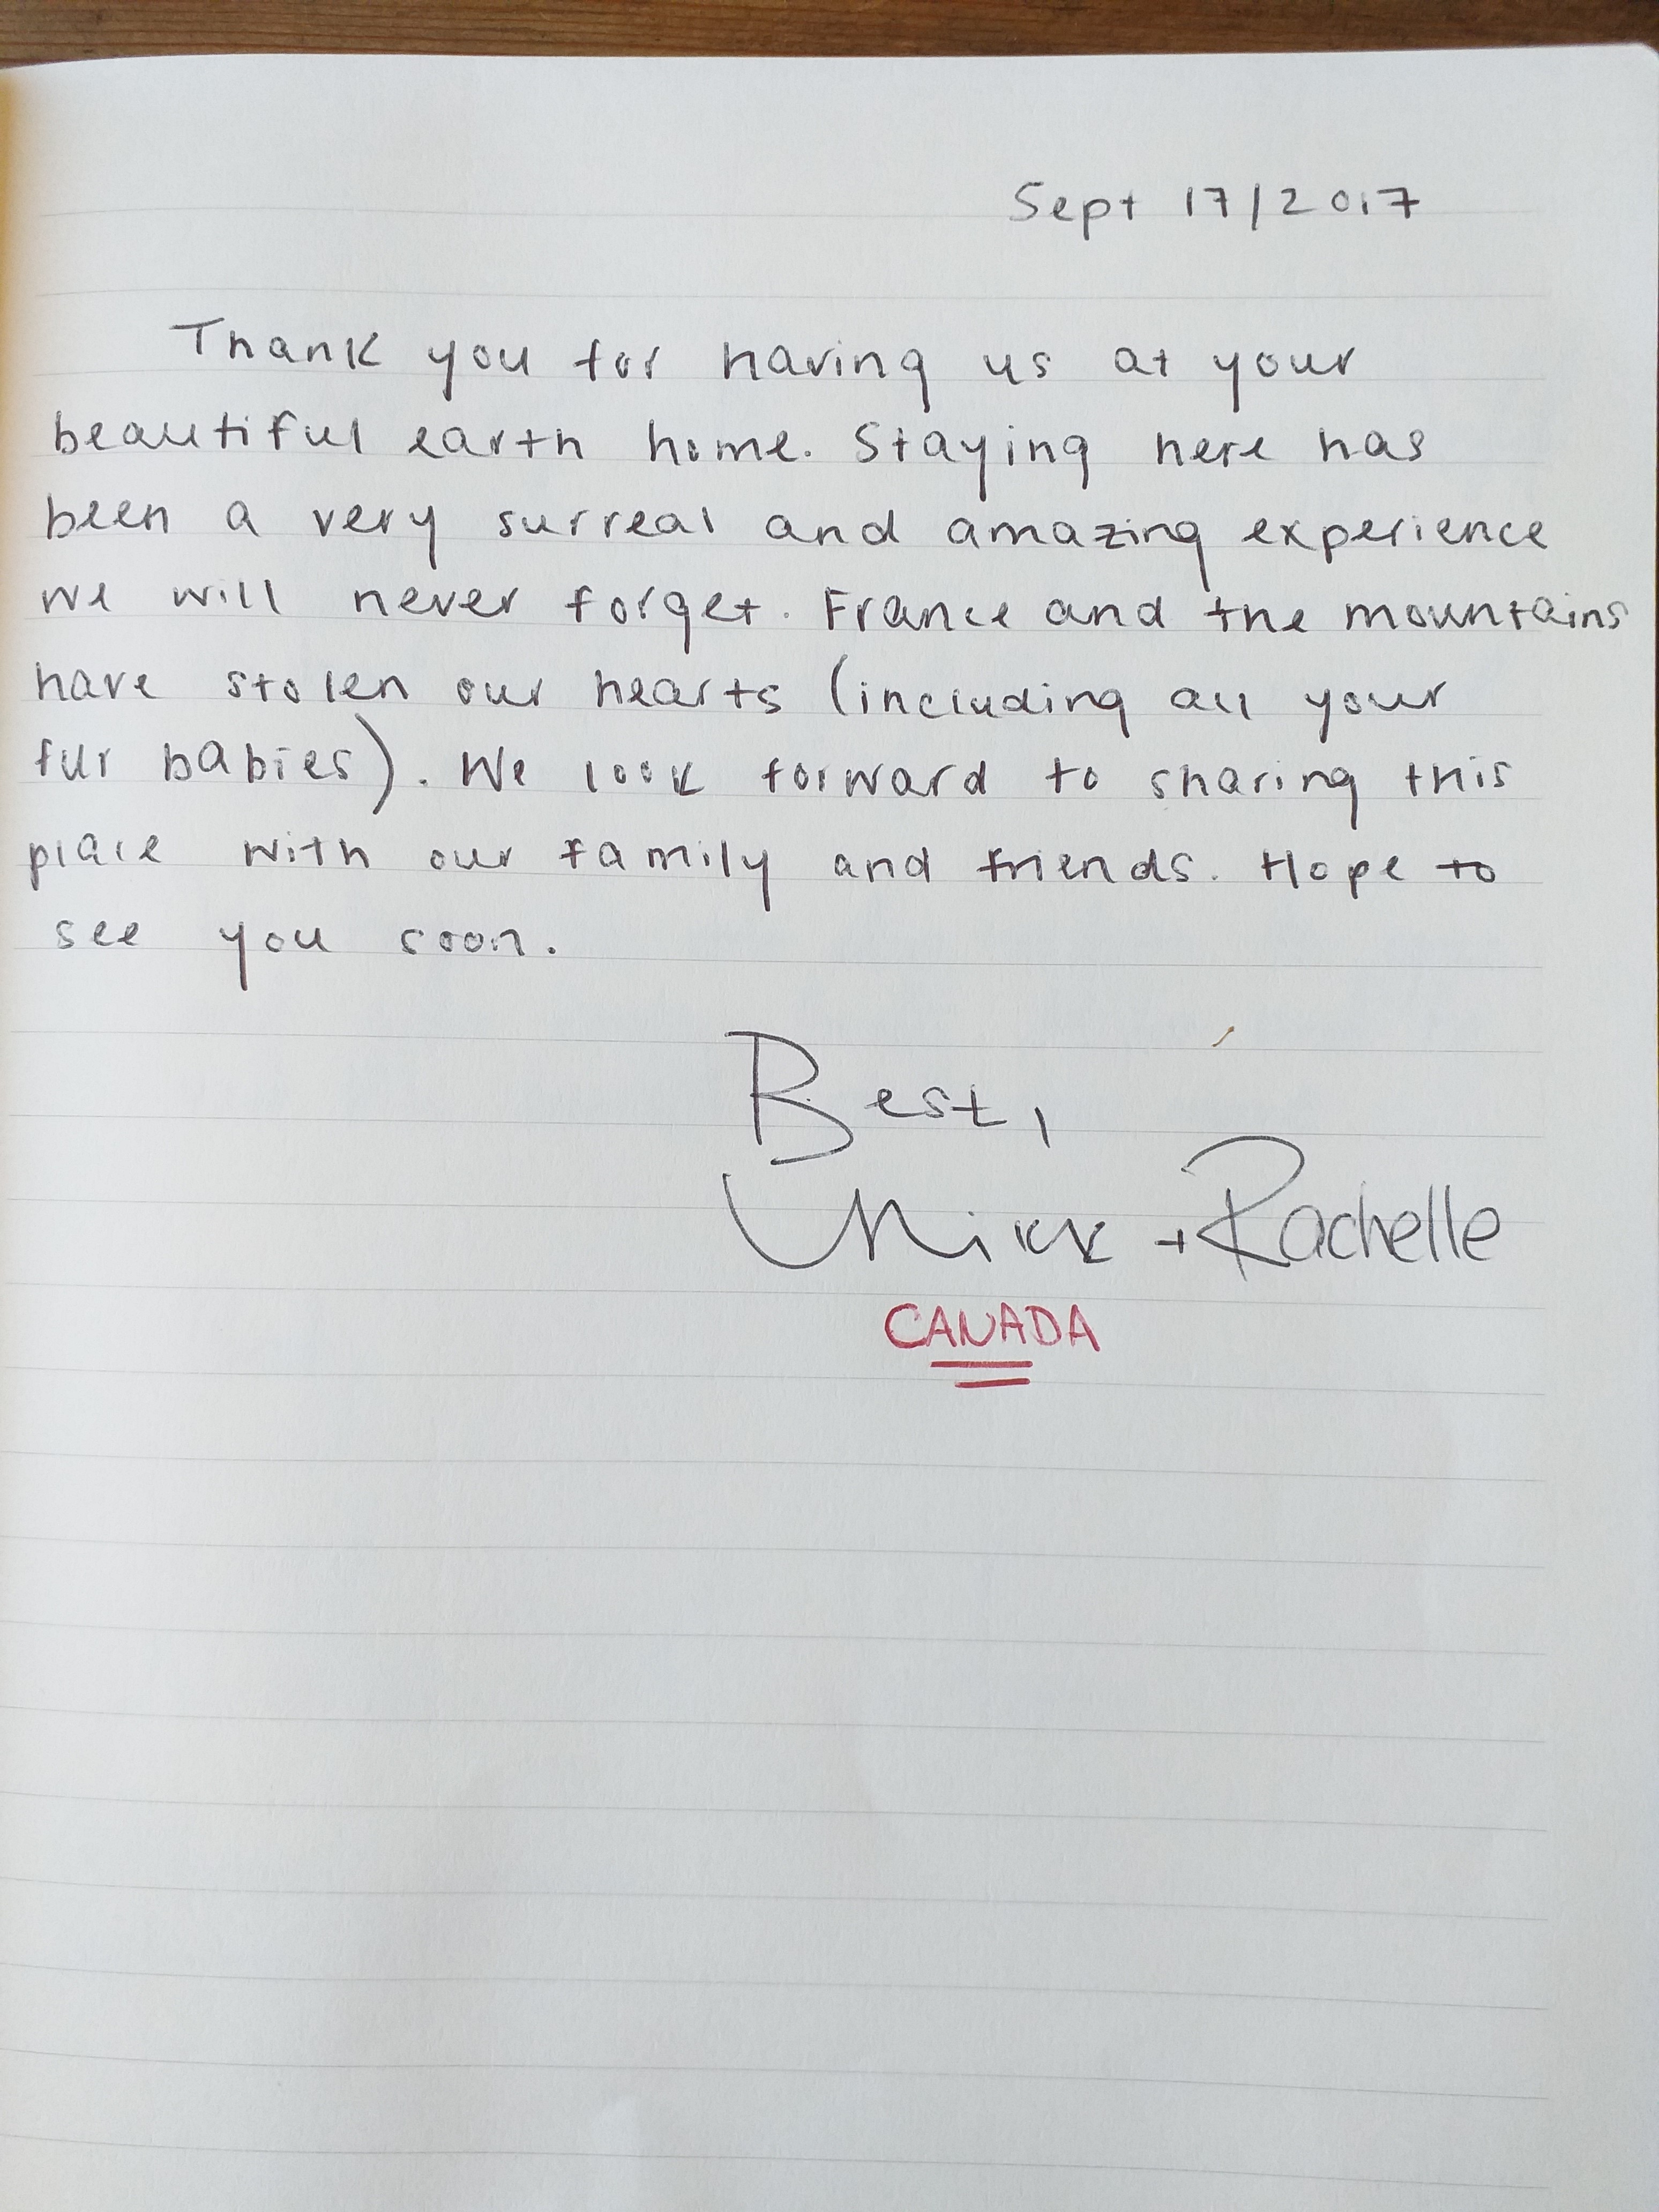 Sept 17/2017
Thank you for having us at your
beautiful earth home. Staying here has
been a very surreal and amazing experience
we will never forget. France and the mountains
have stolen our hearts (including all your
fur babies). We look forward to sharing this
place with our family and friends. Hope to
see you soon.
Best,
Nikk + Rachelle
CANADA